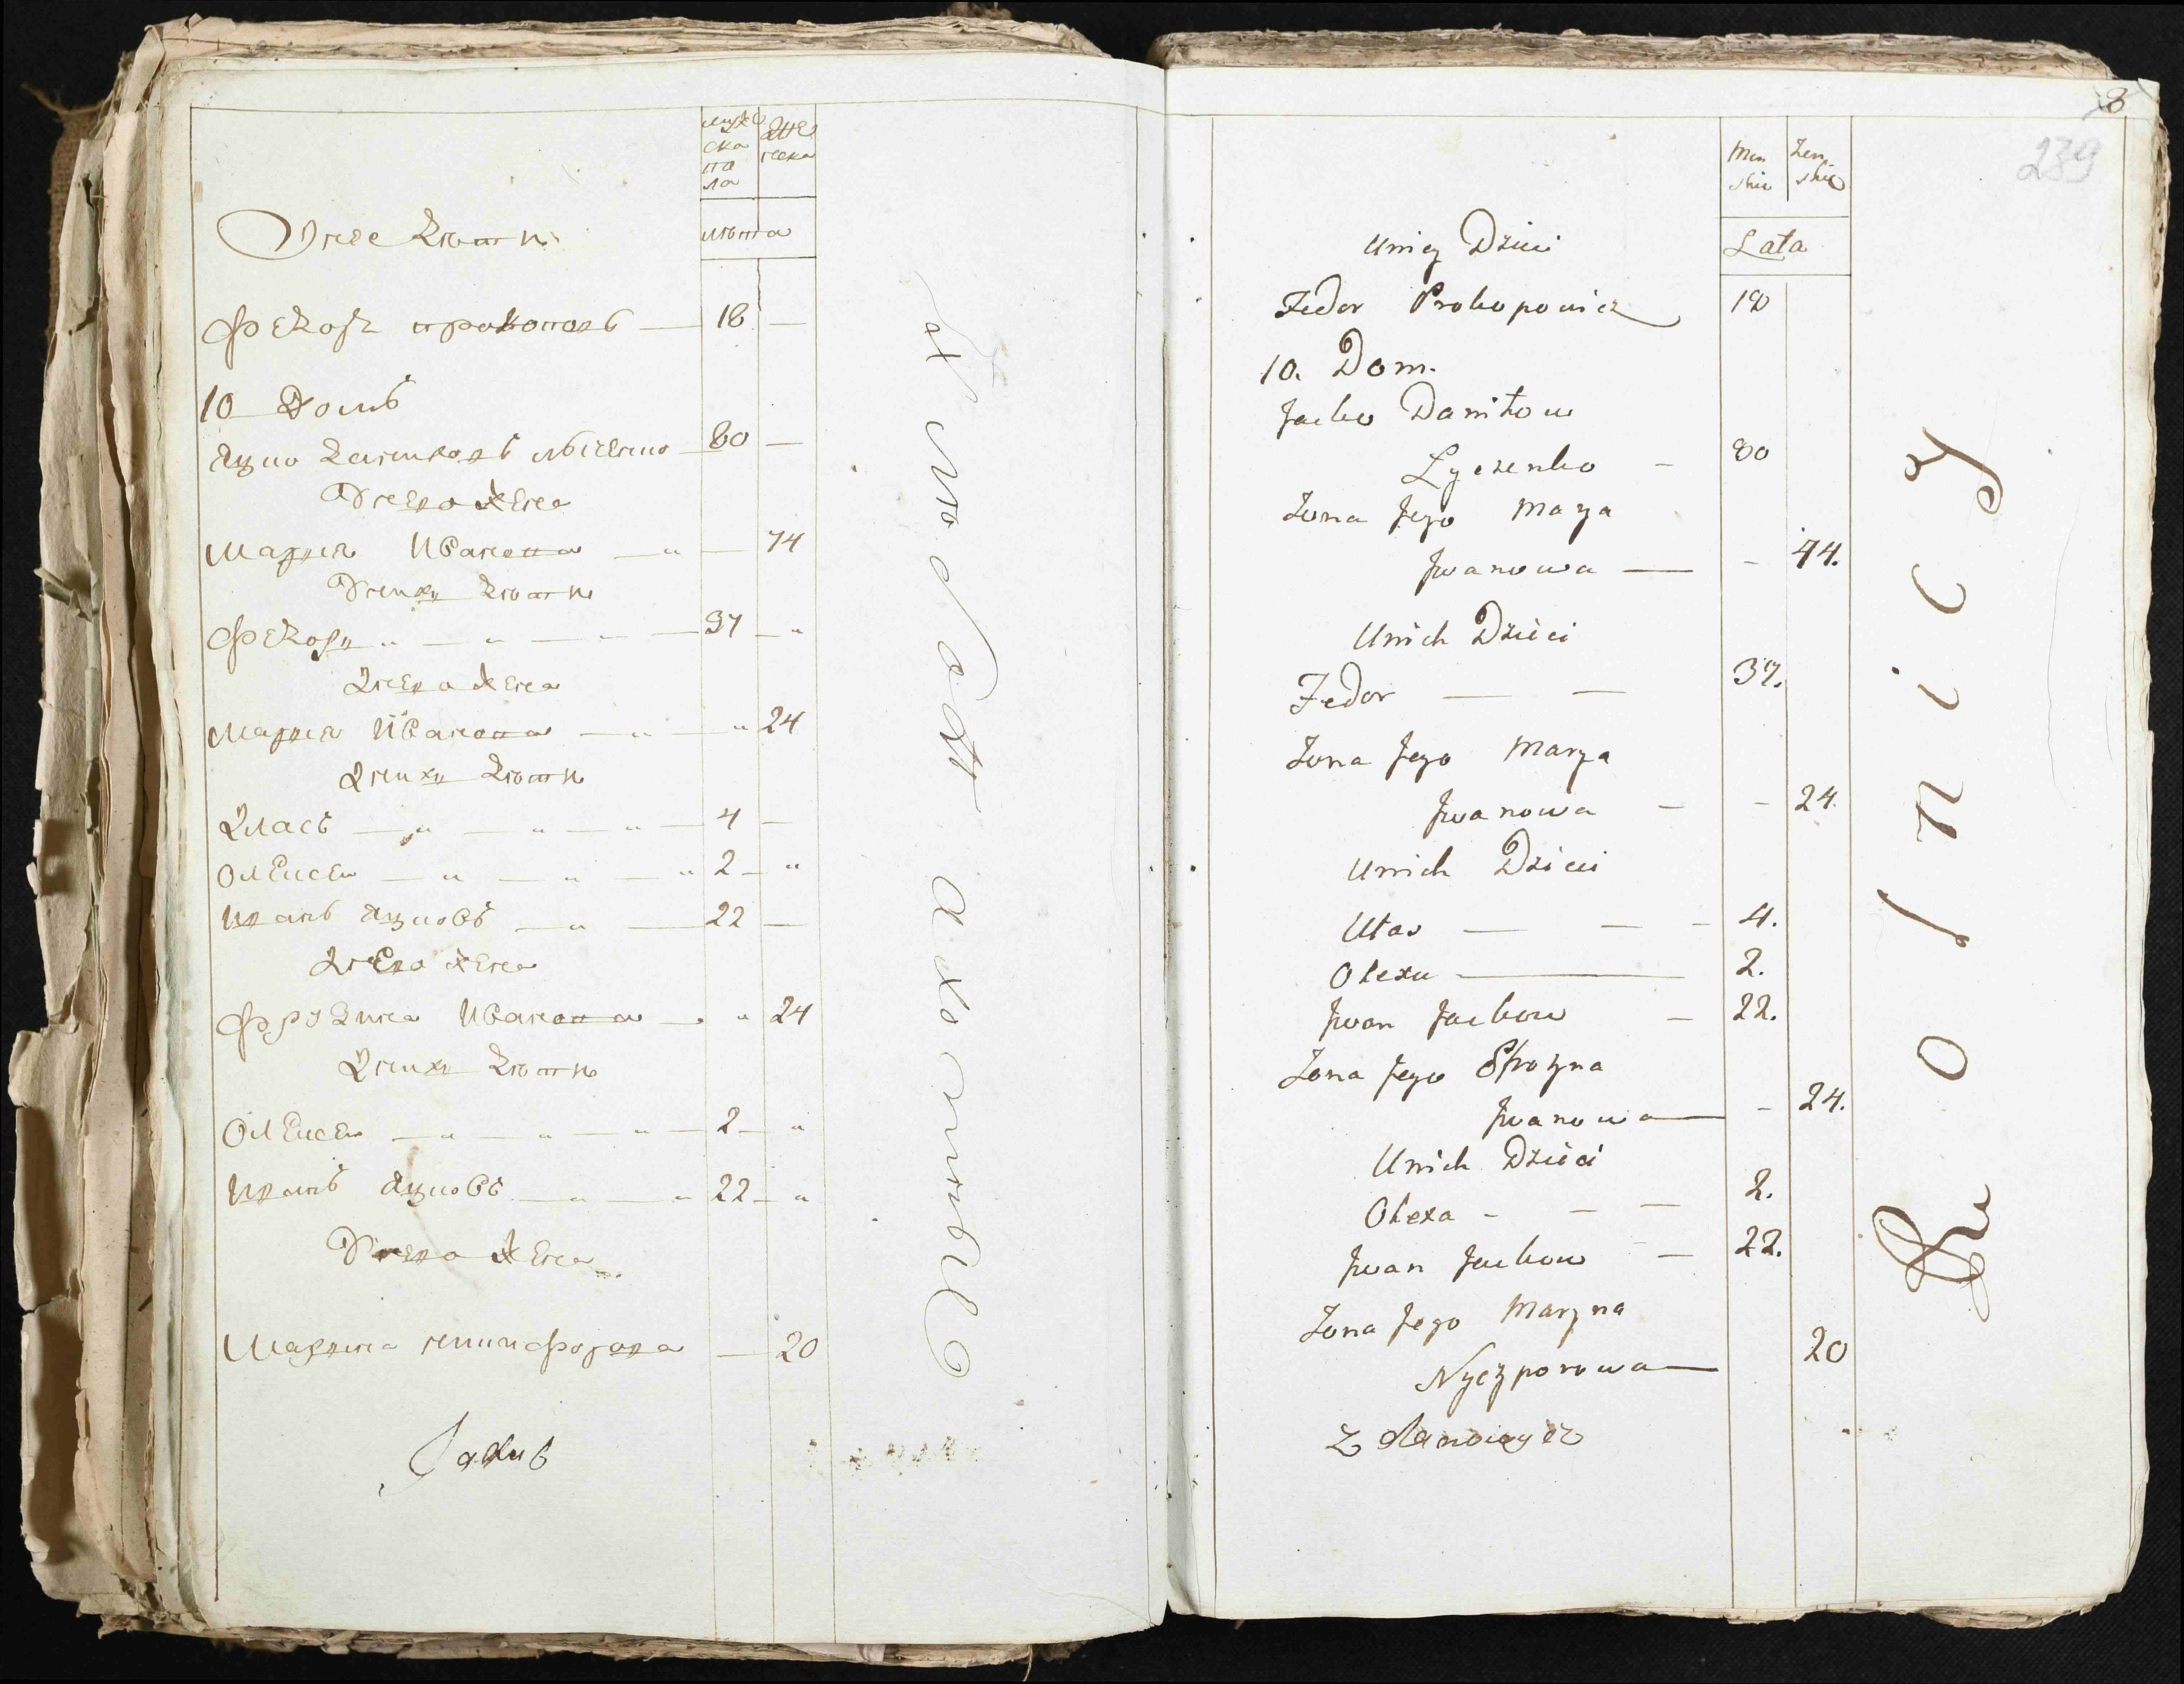 мужеска пола
женска
лѣта
Унее дѣти
Федоръ прокоповъ — 18 —
10 домъ
Яцко даниловъ лысенко 80 —
У него жена
Мария Иванова — " — 74
У нихъ дѣти
Федоръ " — " — — 37 — "
У него жена
Мария Иванова — " — " 24
У нихъ дѣти
Уласъ — " — " — " — 4 —
Олексей — " — " — " 2 — "
Иванъ Яцковъ — " — 22 —
У него жена
Фрузина Иванова — " 24
У нихъ дѣти
Олексей — " — " — " — 2 — "
Иванъ Яцковъ — " — " 22 — "
У него жена
Марина никифорова — 20
8
239
Męs
skie
Żen
skie
Lata
Uniey Dzieci
Fedor Prokopowicz 18
10. Dom.
Jacko Daniłow
Łyczenko — 80
Żona Jego Marya
Jwanowa — - 74.
Unich Dzieci
Fedor — — 37.
Żona Jego Marya
Jwanowa — - 24.
Unich Dzieci
Ułas — — - 4.
Olexu — 2.
Jwan Jackow — 22.
Żona Jego Efrozyna
Jwanowa — - 24.
Unich Dzieci
Olexa - — — 2.
Jwan Jackow — 22.
Żona Jego Maryna
Nyczporowa — 20
Rolnicy